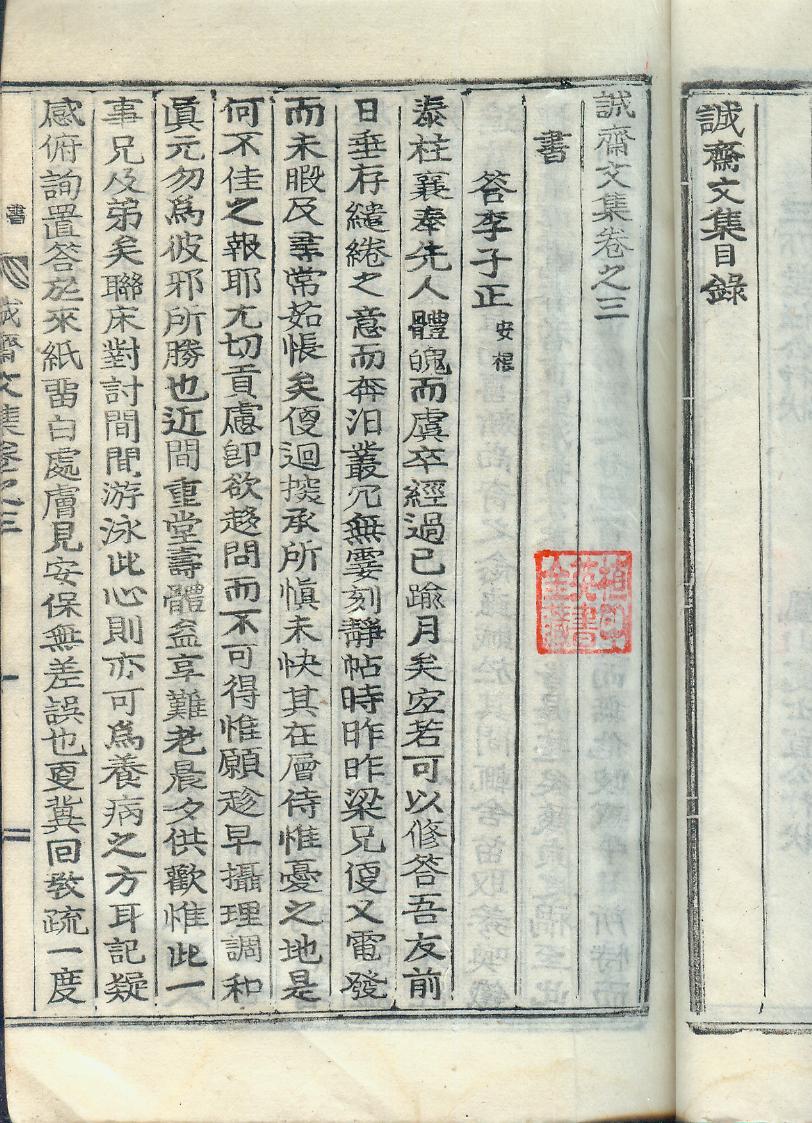 誠齋文集目錄
誠齋文集卷之三
書
答李子正 安根
泰柱襄奉先人體魄而虞卒經過已踰月矣宜若可以修答吾友前
日垂存繾綣之意而奔汨叢冗無霎刻靜帖時昨昨梁兄便又電發
而未暇及尋常茹悵矣便迴擬承所愼未快其在層侍惟憂之地是
何不佳之報耶尤切貢慮卽欲趍問而不可得惟願趁早攝理調和
眞元勿爲彼邪所勝也近間重堂壽體益享難老晨夕供歡惟此一
事兄及弟矣聯床對討間間游泳此心則亦可爲養病之方耳記疑
感俯詢置答於來紙畱白處膚見安保無差誤也更冀回敎疏一度
書
誠齋文集卷之三
一